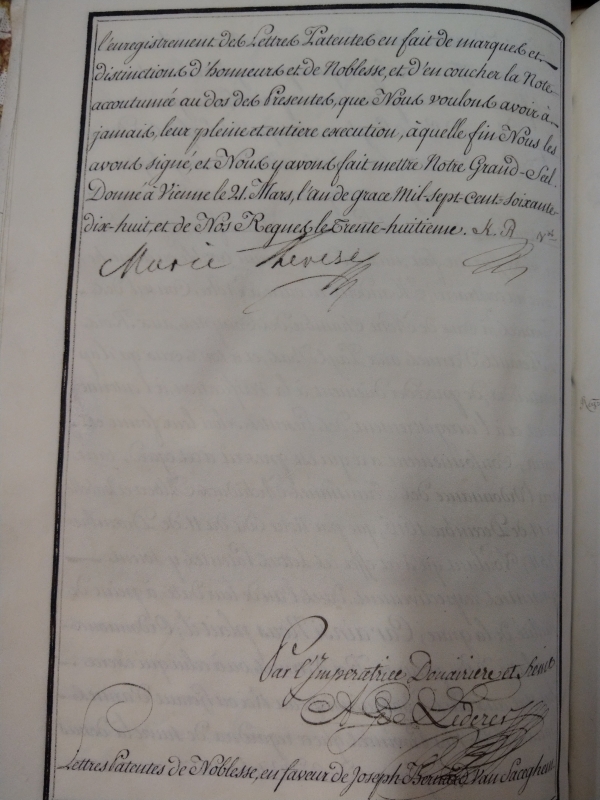 l'enregistrement des Lettres Patentes en fait de marques et
distinctions d'honneurs et de Noblesse, et d'en coucher la Note
accoutumée au dos des Presentes, que Nous voulons avoir à
jamais, leur pleine et entiere execution, à quelle fin Nous les
avons signé, et Nous y avons fait mettre Notre Grand-Seel.
Donné à Vienne le 21. Mars, l'an de grace Mil-sept-Cent-soixante
dix-huit, et de Nos Regnes le Trente-huitieme. K. R. vt
Marie Therese
Par l'Imperatrice Douairiere et Reine
A. G. de Lederer
Lettres Patentes de Noblesse, en faveur de Joseph Bernard Van Saceghem